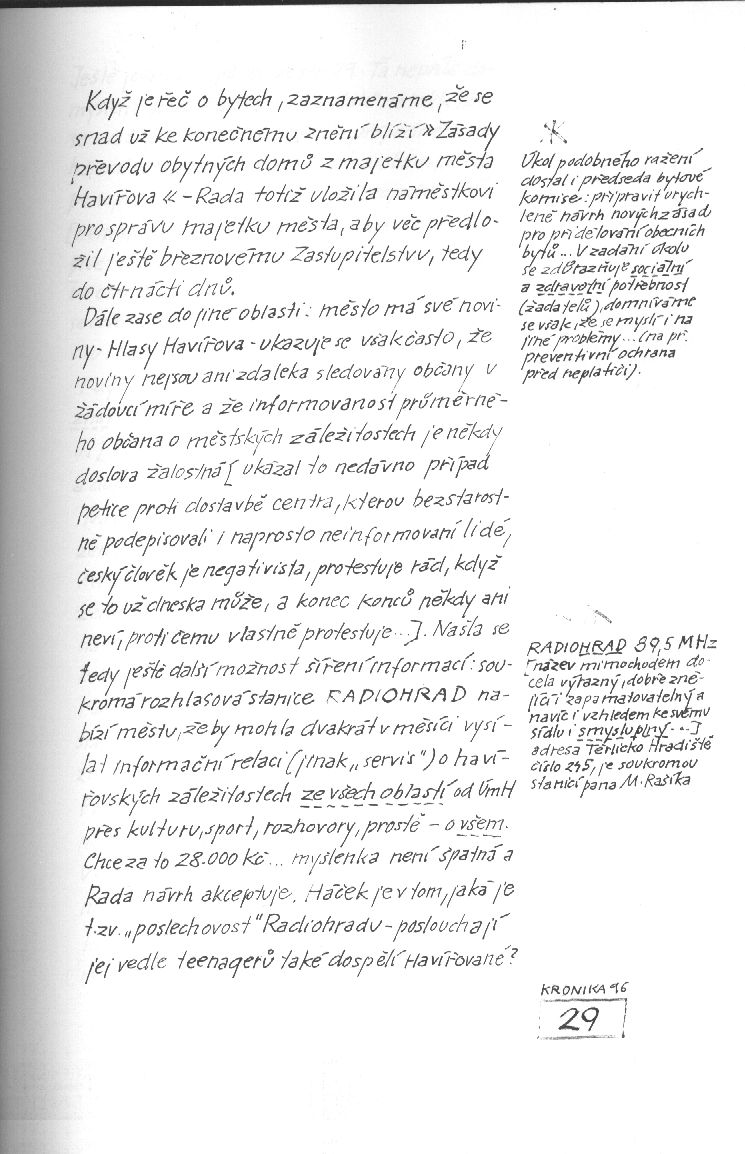 Když je řeč o bytech, zaznamenáme, že se
snad už ke konečnému znění blíží »Zásady
převodu obytných domů z majetku města
Havířova« - Rada totiž uložila náměstkovi
pro správu majetku města, aby věc předlo-
žil ještě březnovému Zastupitelstvu, tedy
do čtrnácti dnů.
Dále zase do jiné oblasti: město má své novi-
ny - Hlasy Havířova - ukazuje se však často, že
noviny nejsou ani zdaleka sledovány občany v
žádoucí míře a že informovanost průměrné-
ho občana o městských záležitostech je někdy
doslova žalostná [ ukázal to nedávno případ
petice proti dostavbě centra, kterou bezstarost-
ně podepisovali i naprosto neinformovaní lidé,
český člověk je negativista, protestuje rád, když
se to už dneska může, a konec konců někdy ani
neví, proti čemu vlastně protestuje...]. Našla se
tedy ještě další možnost šíření informací: sou-
kromá rozhlasová stanice RADIOHRAD na-
bízí městu, že by mohla dvakrát v měsíci vysí-
lat informační relaci (jinak „servis") o haví-
řovských záležitostech ze všech oblastí od ÚmH
přes kulturu, sport, rozhovory, prostě - o všem.
Chce za to 28.000 Kč... myšlenka není špatná a
Rada návrh akceptuje. Háček je v tom, jaká je
t.zv. „poslechovost" Radiohradu - poslouchají
jej vedle teenagerů také dospělí Havířované?
Úkol podobného ražení
dostal i předseda bytové
komise: připravit urych-
leně návrh nových zásad
pro přidělování obecních
bytů... V zadání úkolu
se zdůrazňuje sociální
a zdravotní potřebnost
(žadatelů), domníváme
se však, že se myslí i na
jiné problémy... (na př.
preventivní ochrana
před neplatiči).
RADIOHRAD 89,5 MHz
[název mimochodem do-
cela výrazný, dobře zně-
jící i zapamatovatelný a
navíc i vzhledem ke svému
sídlu i smysluplný...]
adresa Těrlicko Hradiště
číslo 245, je soukromou
stanicí pana M. Rašíka
KRONIKA 96
29